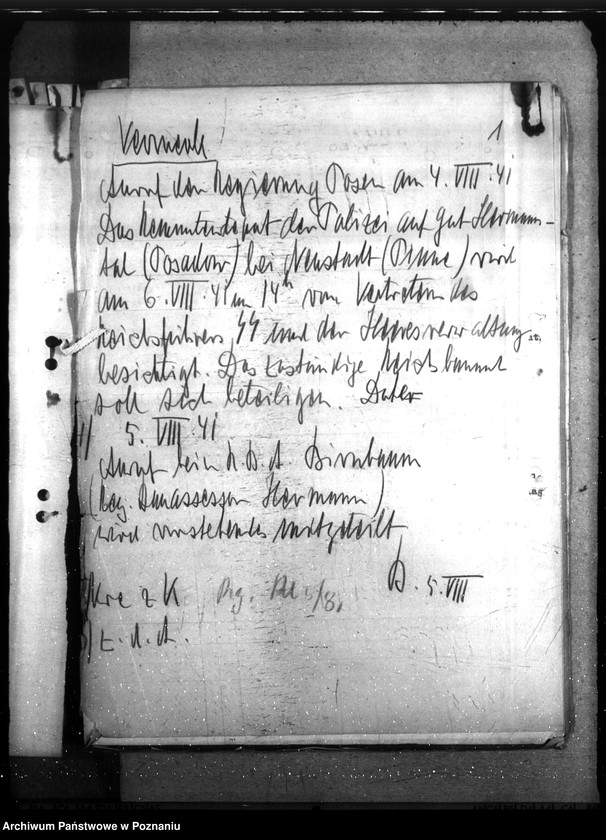 Vermerk
1
Anruf der Regierung Posen am 4. VIII. 41
Das Remontendepot der Polizei auf Gut Hermanns-
tal (Posadow) bei Neustadt (Pinne) wird
am 6. VIII. 41 um 14h von Vertretern des
Reichsführers SS und der Heeresverwaltung
besichtigt. Das zuständige Reichsbauamt
soll sich beteiligen.
1) 5. VIII 41
Anruf beim R.B.A. Birnbaum
(Reg. Bauassessor Hermann)
wird vorstehendes mitgeteilt
D. 5. VIII
z K
z. d. A.
Archiwum Państwowe w Poznaniu